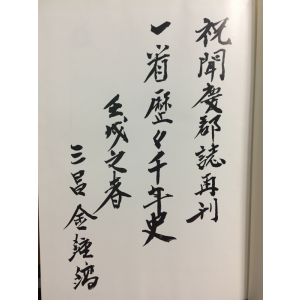 祝聞慶郡誌再刊
一省歷々千年史
壬戌之春
三昌 金鍾